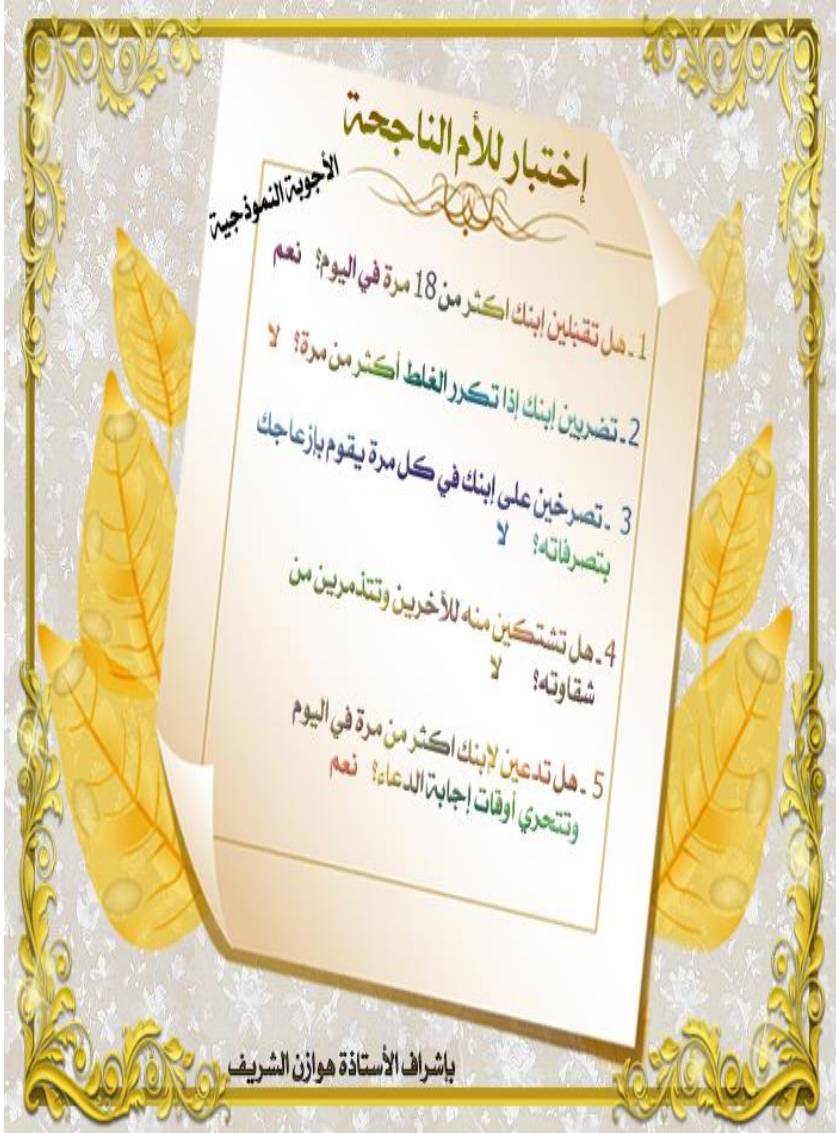 إختبار للأم الناجحة
الأجوبة النموذجية
1 ـ هل تقبلين إبنك اكثر من 18 مرة في اليوم؟ نعم
2 ـ تضربين إبنك إذا تكرر الغلط أكثر من مرة؟ لا
3 ـ تصرخين على إبنك في كل مرة يقوم بإزعاجك
بتصرفاته؟ لا
4 ـ هل تشتكين منه للأخرين وتتذمرين من
شقاوته؟ لا
5 ـ هل تدعين لابنك اكثر من مرة في اليوم
وتتحري أوقات إجابة الدعاء؟ نعم
بإشراف الأستاذة هوازن الشريف